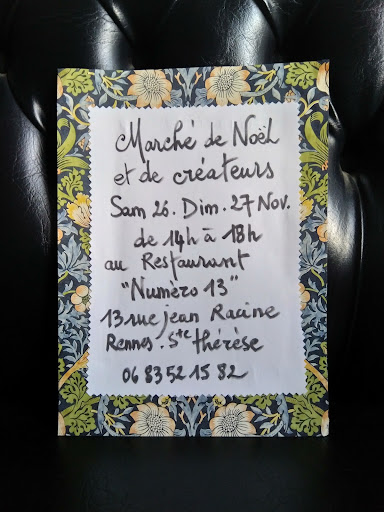 Marché de Noël
et de créateurs
Sam 26. Dim. 27 Nov.
de 14h à 18h
au Restaurant
"Numèro 13"
13 rue jean Racine
Rennes. Ste thérèse
06 83 52 15 82